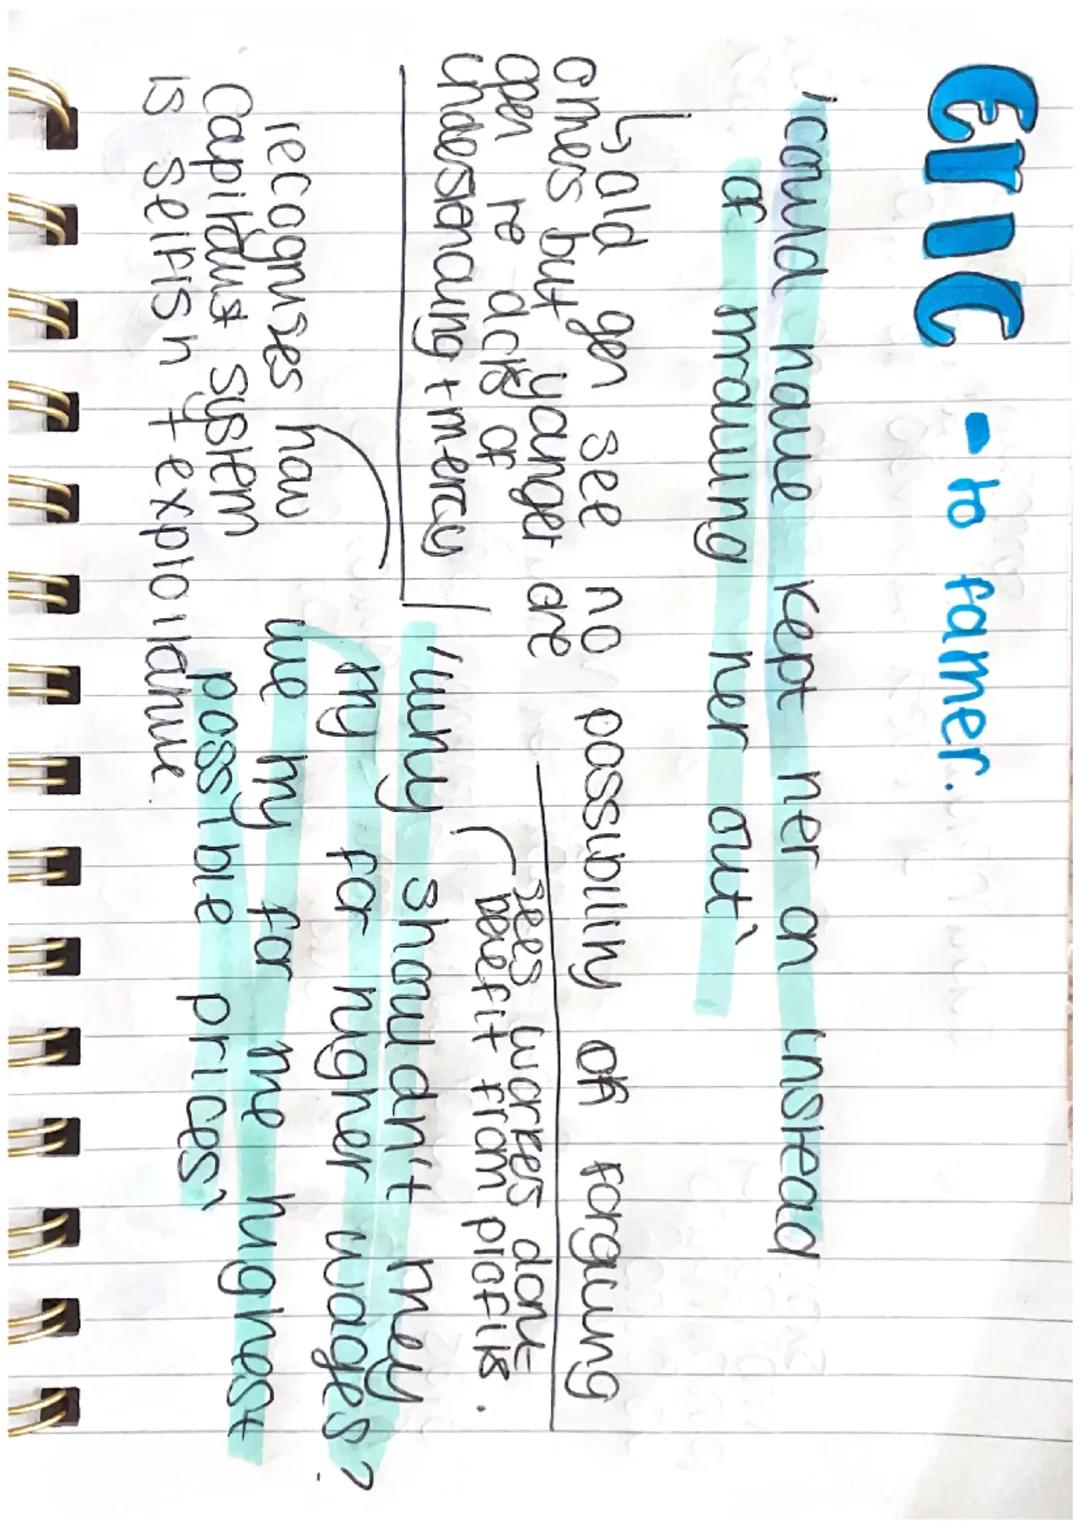 Eric - to famer.
'could have kept her on instead
of throwing her out'
↳ old gen see no possibility of forgiving
ones but younger are
open to acts of
understanding + mercy
sees workes dont
benefit from profits.
'why shouldn't they
try for higher wages?
we try for the highest
possible prices'
recognises how
capitalist system
is selfish + exploitative.